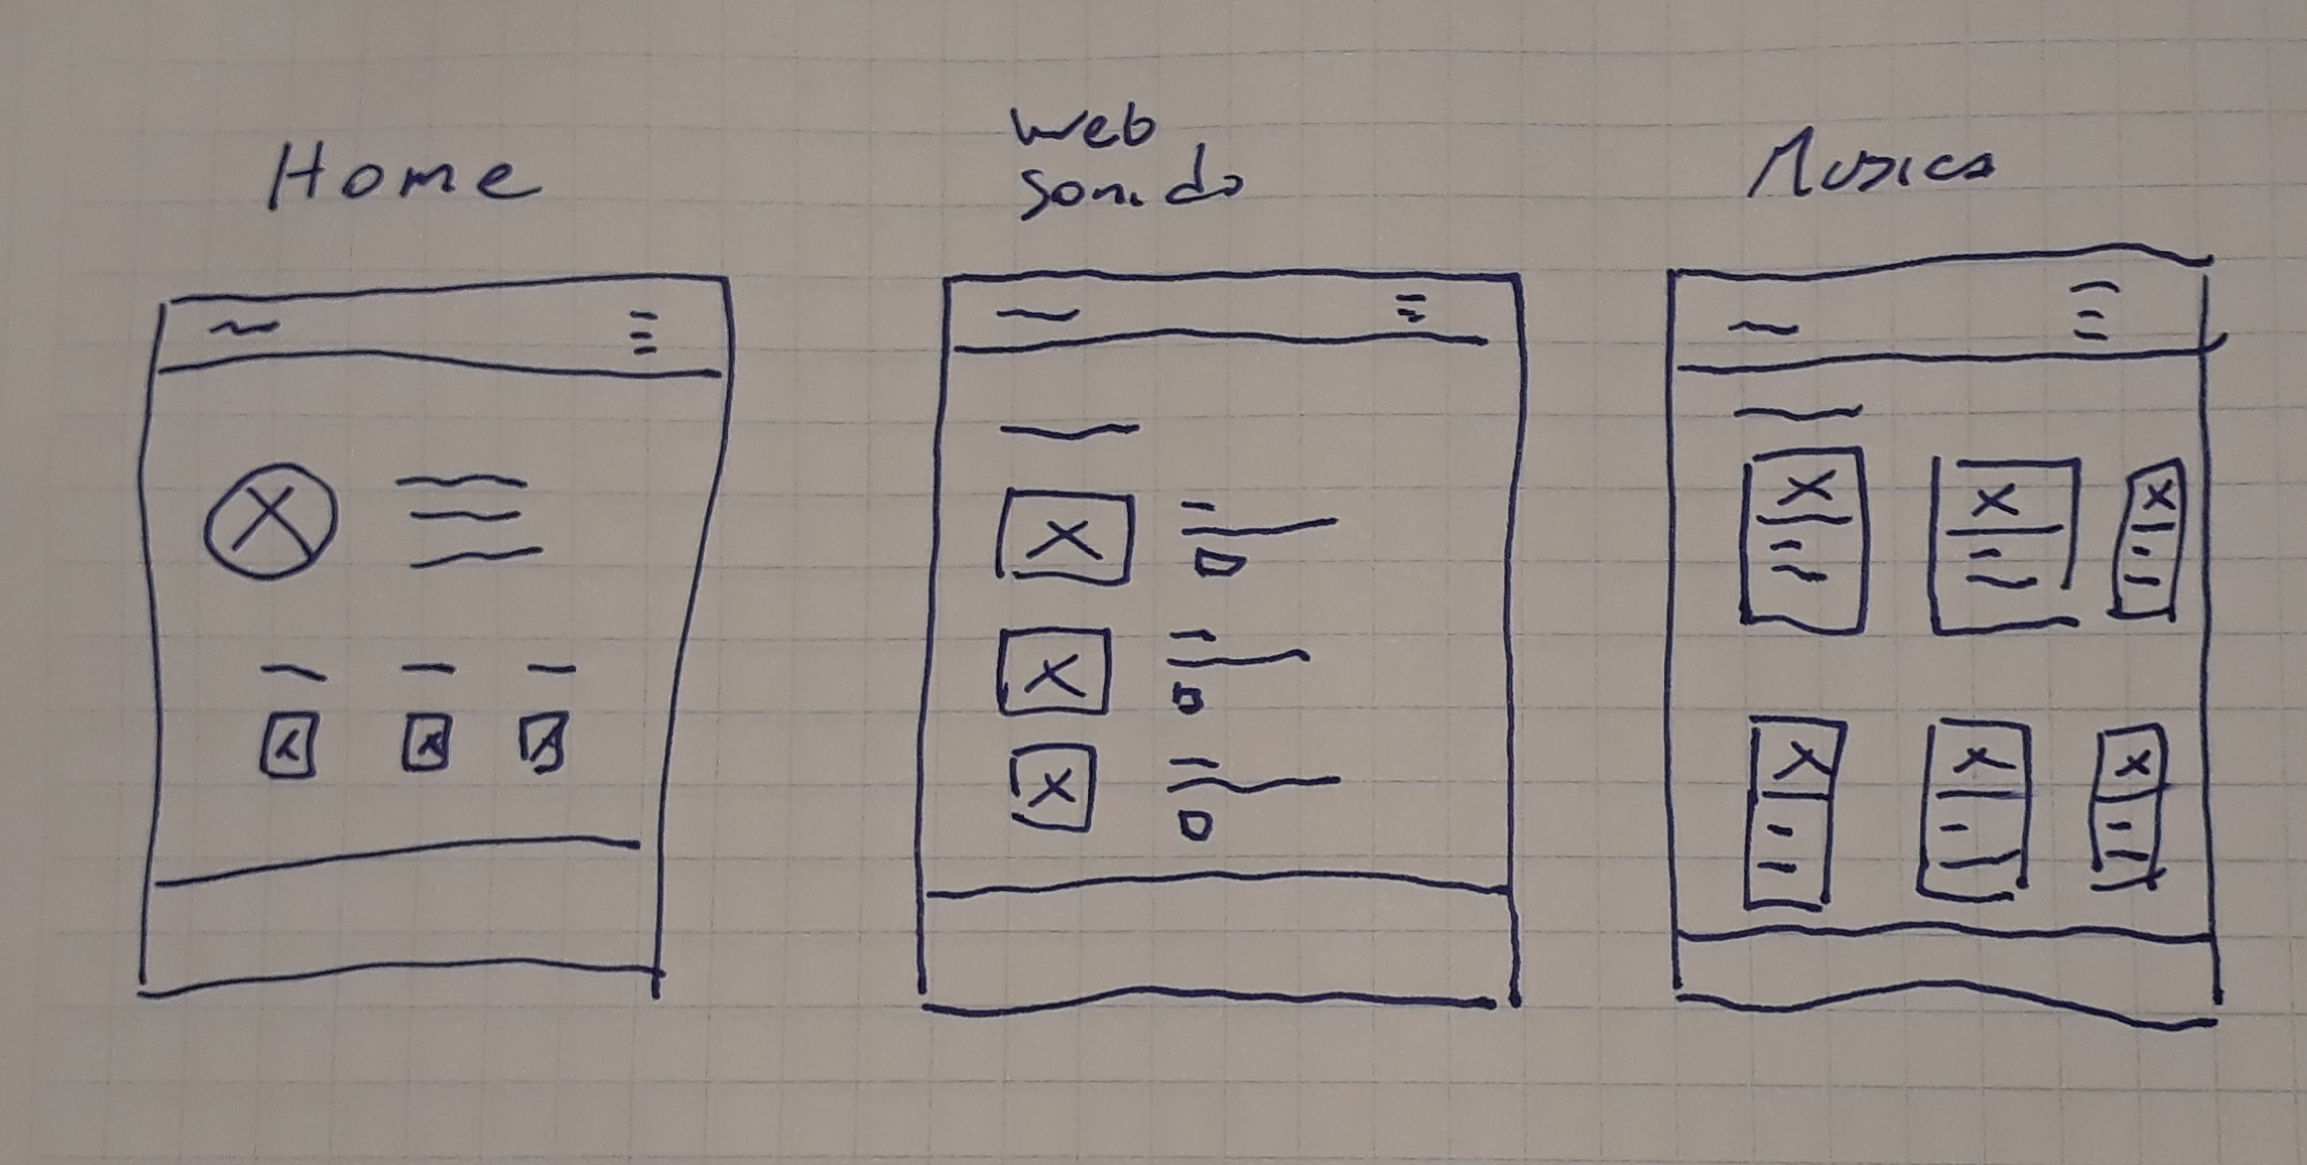 Home
Web
Sonido
Musica